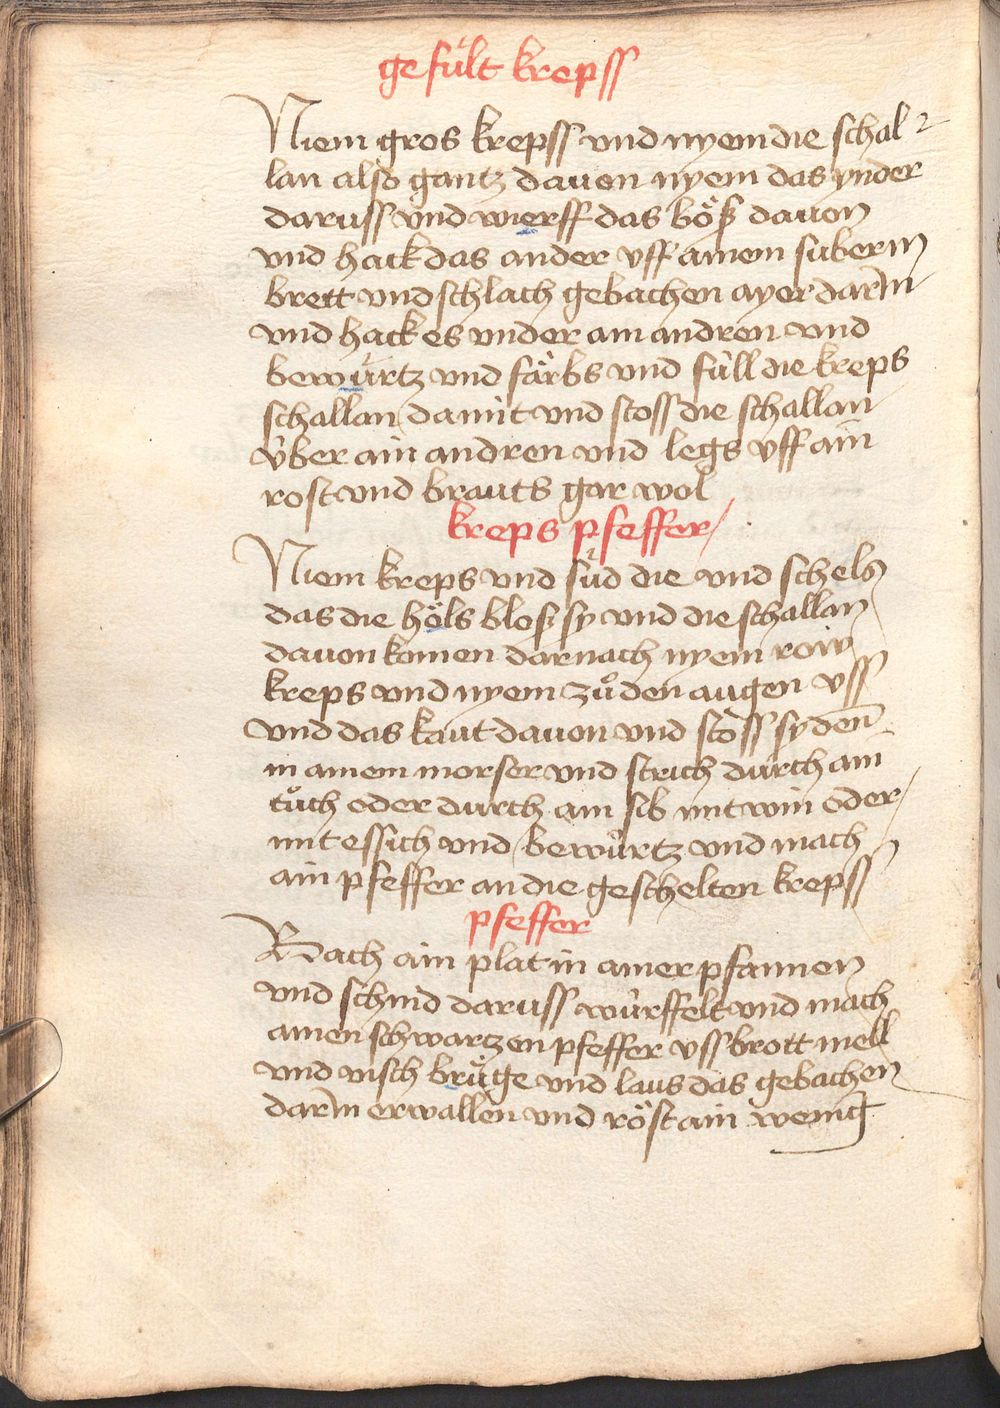 gefült krepss
Niem gros krepss vnd nyem die schal⸗
lan also gantz dauon nyem das ynder
daruss vnd wierff das böß dauon
vnd hack das ander vff ainem suberm
brett vnd schlach gebachen ayer darin
vnd hack es vnder ain andren vnd
bewürtz vnd färbs vnd füll die kreps
schallan damit vnd stoss die schallan
über ain andren vnd legs vff ain
rost vnd brauts gar wol
kreps pfeffer
Niem kreps vnd süd die vnd schels
das die höls blos sy vnd die schallan
dauon komen darnach nyem row
kreps vnd nyem zů den augen vss
vnd das kaut dauon vnd stoss sy den̄
in ainem morser vnd strich durch ain
tůch oder durch ain sib mit win oder
mit essich vnd bewürtz vnd mach
ain pfeffer an die geschelten krepss
pfeffer
Bach ain plat in ainer pfannen
vnd schnid daruss würffelt vnd mach
ainen schwartzen pfeffer vss brott mell
vnd visch brüge vnd laus das gebachen
darin erwallen vnd röst ain wenig